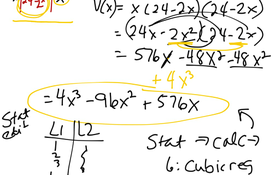 V(x) = x(24-2x)(24-2x)
= (24x-2x²)(24-2x)
= 576x-48x²-48x²
+4x³
= 4x³-96x²+576x
Stat
L1 L2
1
2
3
Stat → calc →
6: Cubic reg